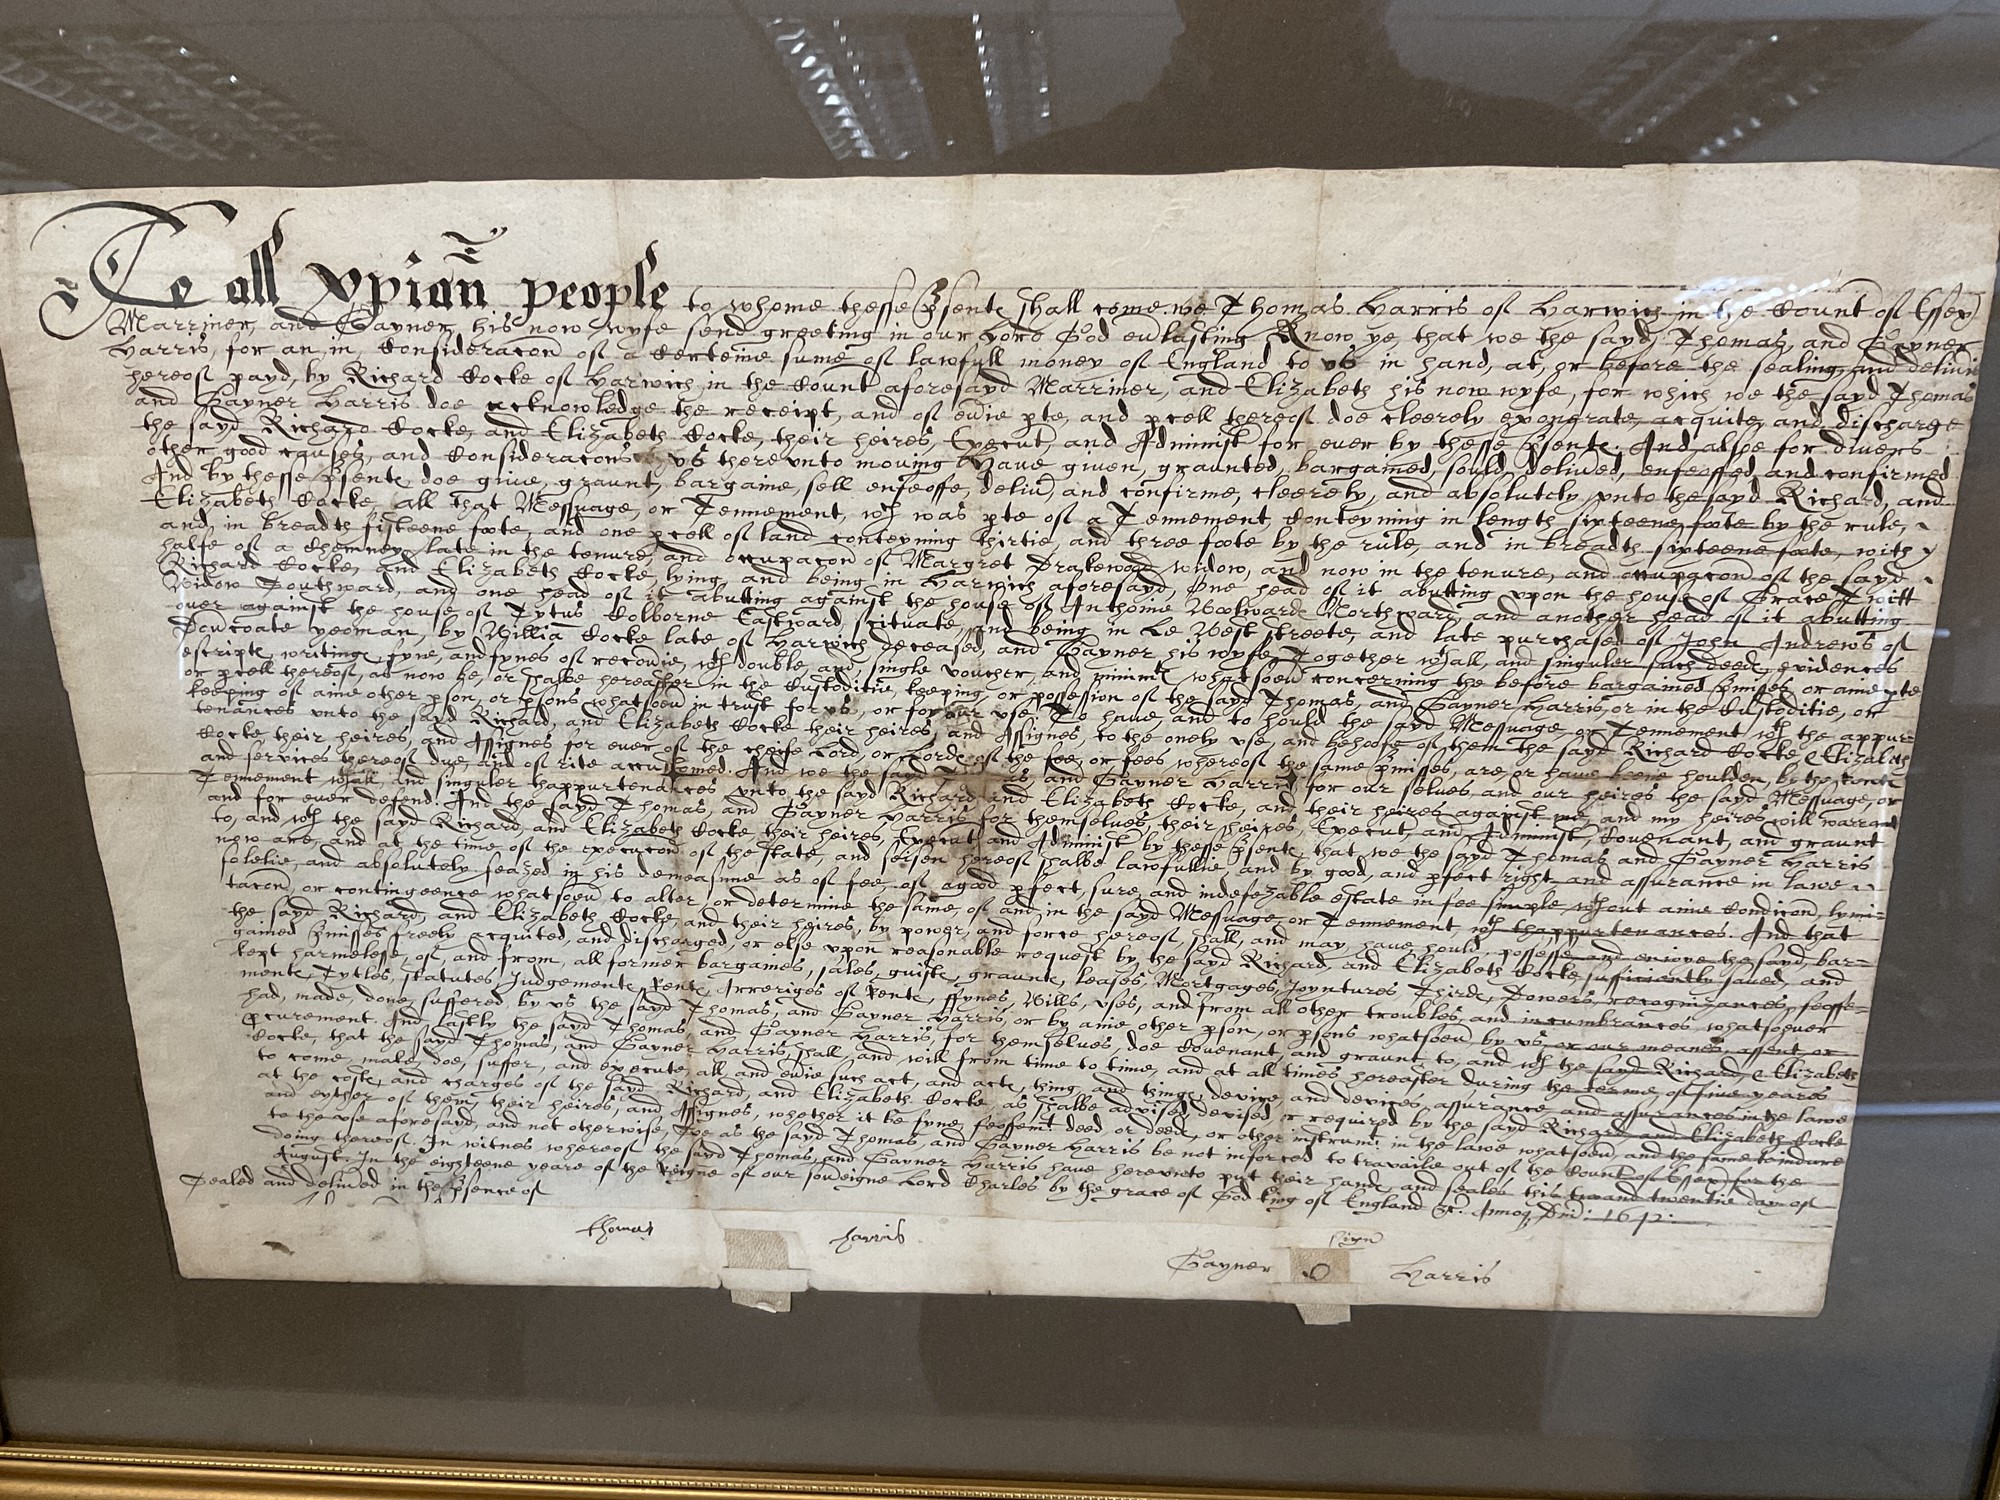 To all xpian people to whome thesse psente shall come we Thomas Harris of Harwich in the Count of Essex
Marriner, and Gayner his now wyfe send greeting in our Lord God eulasting Know ye, that we the sayd, Thomas, and Gayner
Harris, for an in, Consideracon of a Certeine sume of lawfull money of England to us in hand, at, or before the sealing, and deliuie
hereof payd, by Richard Cocke of Harwich in the Count aforesayd Marriner, and Elizabeth his now wyfe, for which we the sayd Thomas
and Gayner Harris doe acknowledge the receipt, and of euie pte, and pcell thereof doe cleerely exonerate, acquite, and discharge
the sayd Richard Cocke, and Elizabeth Cocke, their heires, Execut, and Administ for ever by thesse psente. And alsoe for divers
other good causes, and Consideracons us there unto moving Have given, graunted, bargained, sould, deliued, enfeoffed and confirmed
And by thesse psente doe give, graunt, bargaine, sell enfeoffe, deliu, and confirme, cleerely, and absolutely unto the sayd Richard, and
Elizabeth Cocke all that Messuage, or Tennement, wch was pte of a Tennement, Conteyning in length sixteene foote by the rule,
and, in breadth fifteene foote, and one pcell of land conteyning thirtie, and three foote by the rule, and in breadth sixteene foote, with
halfe of a Chemney late in the tenure, and occupacon of Margret Drakewood widow, and now in the tenure, and occupacon of the sayd
Richard Cocke, and Elizabeth Cocke, lying, and being in Harwich aforesayd, One head of it abutting upon the house of Grace Twitt
Widow Southward, and one head of it abutting against the house of Anthonie Woolward Northward, and another head of it abutting
over against the house of Tytus Colborne Eastward, scituate, and being in Le West streete, and late purchased of John Andrews of
Dovrcoate yeoman, by Willia Cocke late of Harwich deceased, and Gayner his wyfe, Together wth all, and singuler such deede, evidences
escripte, writinge, fyne, and fynes of recouie, wth double, and single voucher, and minimte whatsoeu concerning the before bargained pmisses, or anie pte
or pcell thereof, as now be, or shalbe hereafter in the Custoditie, keeping, or possession of the sayd Thomas, and Gayner Harris, or in the Custoditie, or
keeping of anie other pson, or psons whatsoeu in trust for us, or for our use, To have, and to hould the sayd Messuage, or Tennement wth the appur-
tenances unto the sayd Richard, and Elizabeth Cocke their heires, and Assignes, to the onely use, and behoofe of them the sayd Richard Cocke, & Elizabeth
Cocke their heires, and Assignes for ever of the cheife Lord, or Lorde of the fee, or fees whereof the same pmisses, are, or have beene houlden, by the rente
and services thereof due, and of rite accustomed. And we the sayd Thomas and Gayner Harris for our selues, and our heires the sayd Messuage, or
Tennement wth all, and singuler thappurtenances unto the sayd Richard, and Elizabeth Cocke, and their heires against me, and my heires will warrant
and for ever defend. And the sayd Thomas, and Gayner Harris for themselves, their heires, Execut, and Administ, Covenant, and graunt
to, and wth the sayd Richard, and Elizabeth Cocke, their heires, Execut, and Administ by thesse psente, that we the sayd Thomas and Gayner Harris
now are, and at the time of the execucon of the state, and seisen hereof shalbe lawfullie, and by good, and pfect right and assurance in lawe
solelie, and absolutely seazed in his demeasne as of fee, of a good pfect, sure, and indefezable estate in fee simple, wthout anie Condicon, lymi-
tacon, or contingence whatsoeu to alter, or determine the same, of and in the sayd Messuage, or Tennement, wth thappurtenances. And that
the sayd Richard, and Elizabeth Cocke, and their heires, by power, and force hereof, shall, and may, have hould, possesse, and enioye the sayd bar-
gained pmisses freely acquited, and discharged, or else upon reasonable request by the sayd Richard, and Elizabeth Cocke, sufficiently saved, and
kept harmelesse, of, and from, all former bargaines, sales, guifte, graunte, leases, Mortgages, Joyntures Thirde, Dowers, recognizances, feoffe-
mente, Tytles, Statutes, Judgemente, Rente, Arreriges of Rente, ffynes, Wills, uses, and from all other troubles, and incumbrances, whatsoever
had, made, done, suffered by us the sayd Thomas, and Gayner Harris, or by anie other pson, or psons whatsoeu, by us, or our meanes, assent or
pcurement. And lastly the sayd Thomas, and Gayner Harris, for themselves, doe Covenant, and graunt, to, and wth the sayd Richard, & Elizabeth
Cocke, that the sayd Thomas, and Gayner Harris, shall, and will from time to time, and at all times hereafter during the terme, of five yeares
to come, make, doe, suffer, and execute, all, and euie such act, and acte, thing, and things, devise, and devices, assurance, and assurances in the lawe
at the coste, and charges of the sayd Richard, and Elizabeth Cocke as shalbe advised, devised or required by the sayd Richard, and Elizabeth Cocke
and eyther of them, their heires, and Assignes, whether it be fyne, feoffemt deed or deede, or other instrumt in the lawe whatsoeu, and the same to indure
to the use aforesayd, and not otherwise, Soe as the sayd Thomas, and Gayner Harris be not inforced to travaile out of the Count of Essex for the
doing thereof. In witnes whereof the sayd Thomas, and Gayner Harris have hereunto put their hande, and seales this twoand twentie day of
August. In the eighteene yeare of the Reigne of our soueigne Lord Charles by the grace of God king of England &c. Annoq Dni: 1642.
Sealed and deliued in the psence of
Thomas Harris
Sign
Gayner Harris